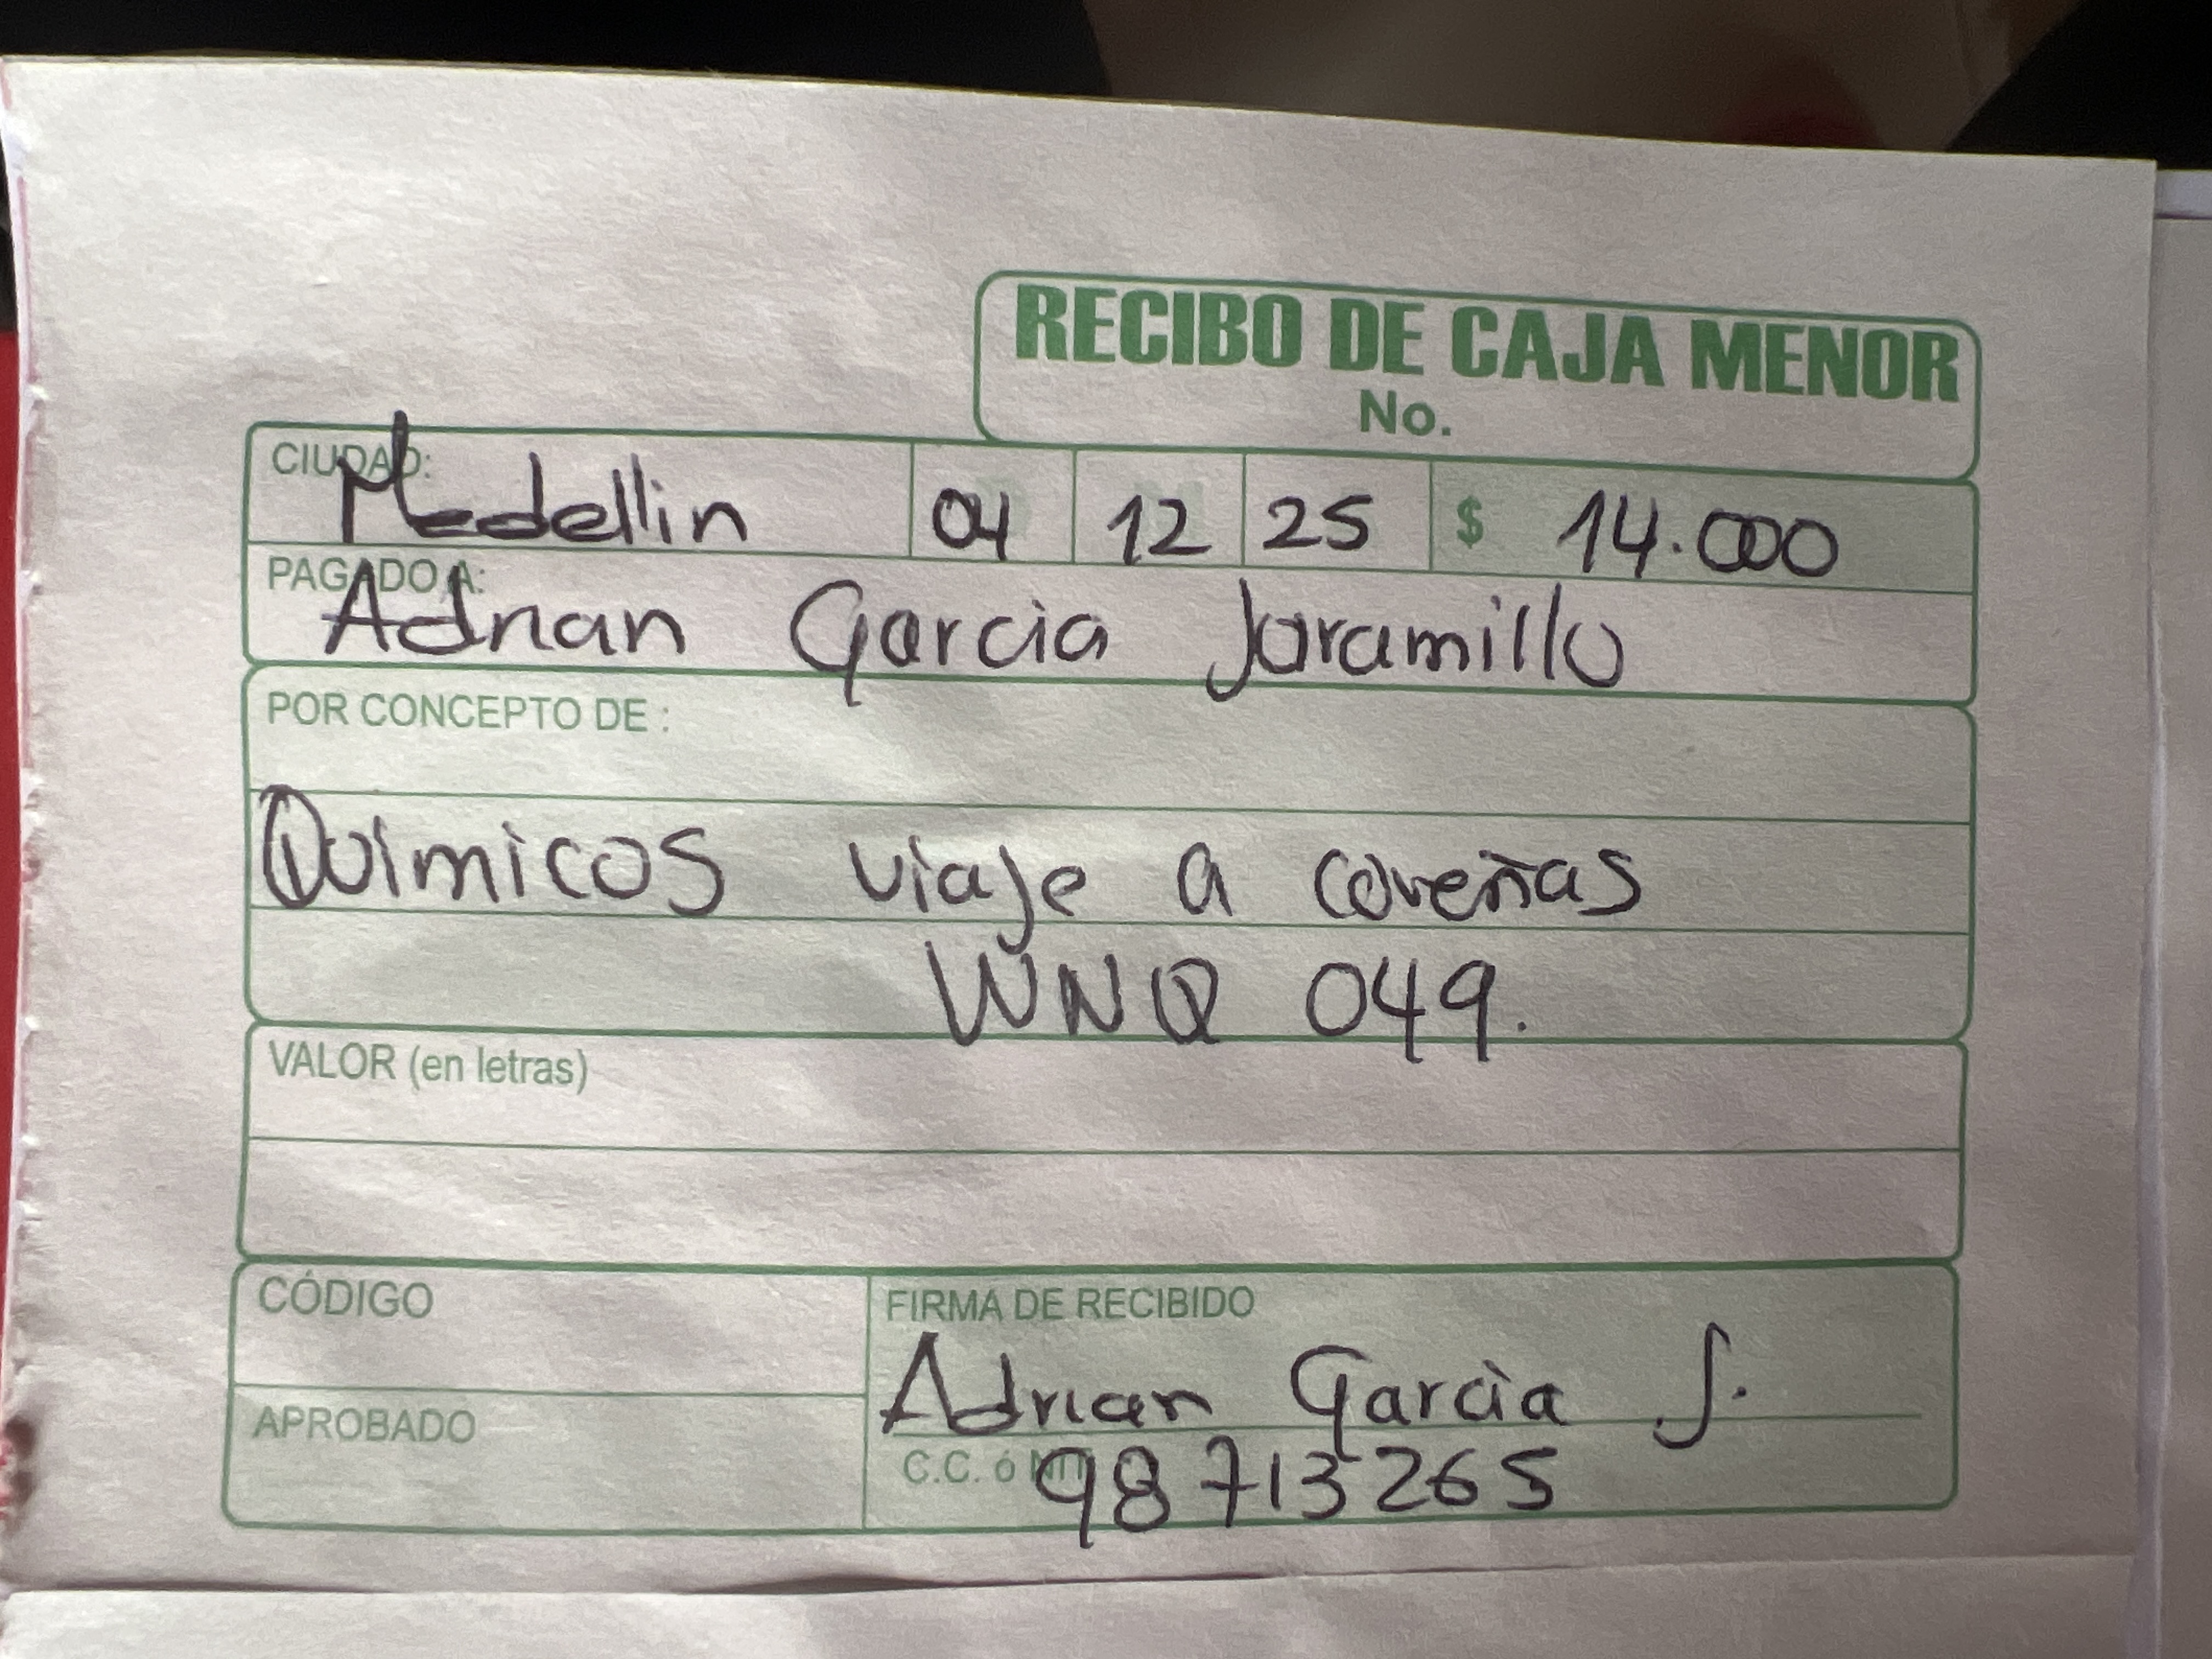 RECIBO DE CAJA MENOR
No.
CIUDAD: Medellin 04 12 25 $ 14.000
PAGADO A: Adrian Garcia Jaramillo
POR CONCEPTO DE :
Quimicos viaje a coveñas
WNQ 049.
VALOR (en letras)
CÓDIGO
FIRMA DE RECIBIDO
Adrian Garcia J.
APROBADO
C.C. ó NIT 98713265